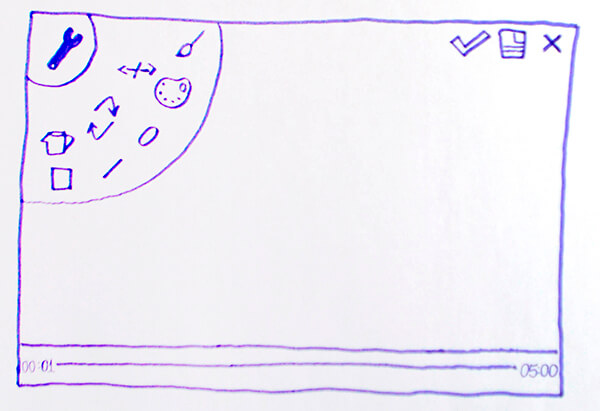 00:01 05:00